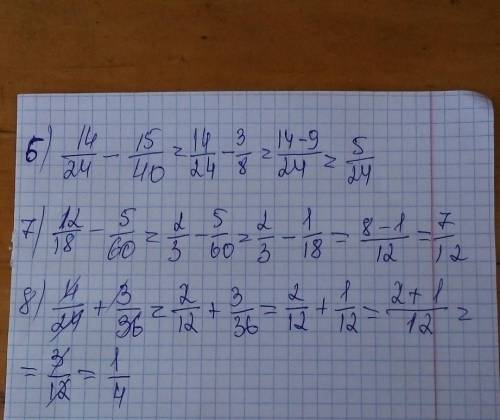 6) 14/24 - 15/40 = 14/24 - 3/8 = 14-9/24 = 5/24
7) 12/18 - 5/60 = 2/3 - 5/60 = 2/3 - 1/18 = 8-1/12 = 7/12
8) 4/24 + 3/36 = 2/12 + 3/36 = 2/12 + 1/12 = 2+1/12 =
= 3/12 = 1/4